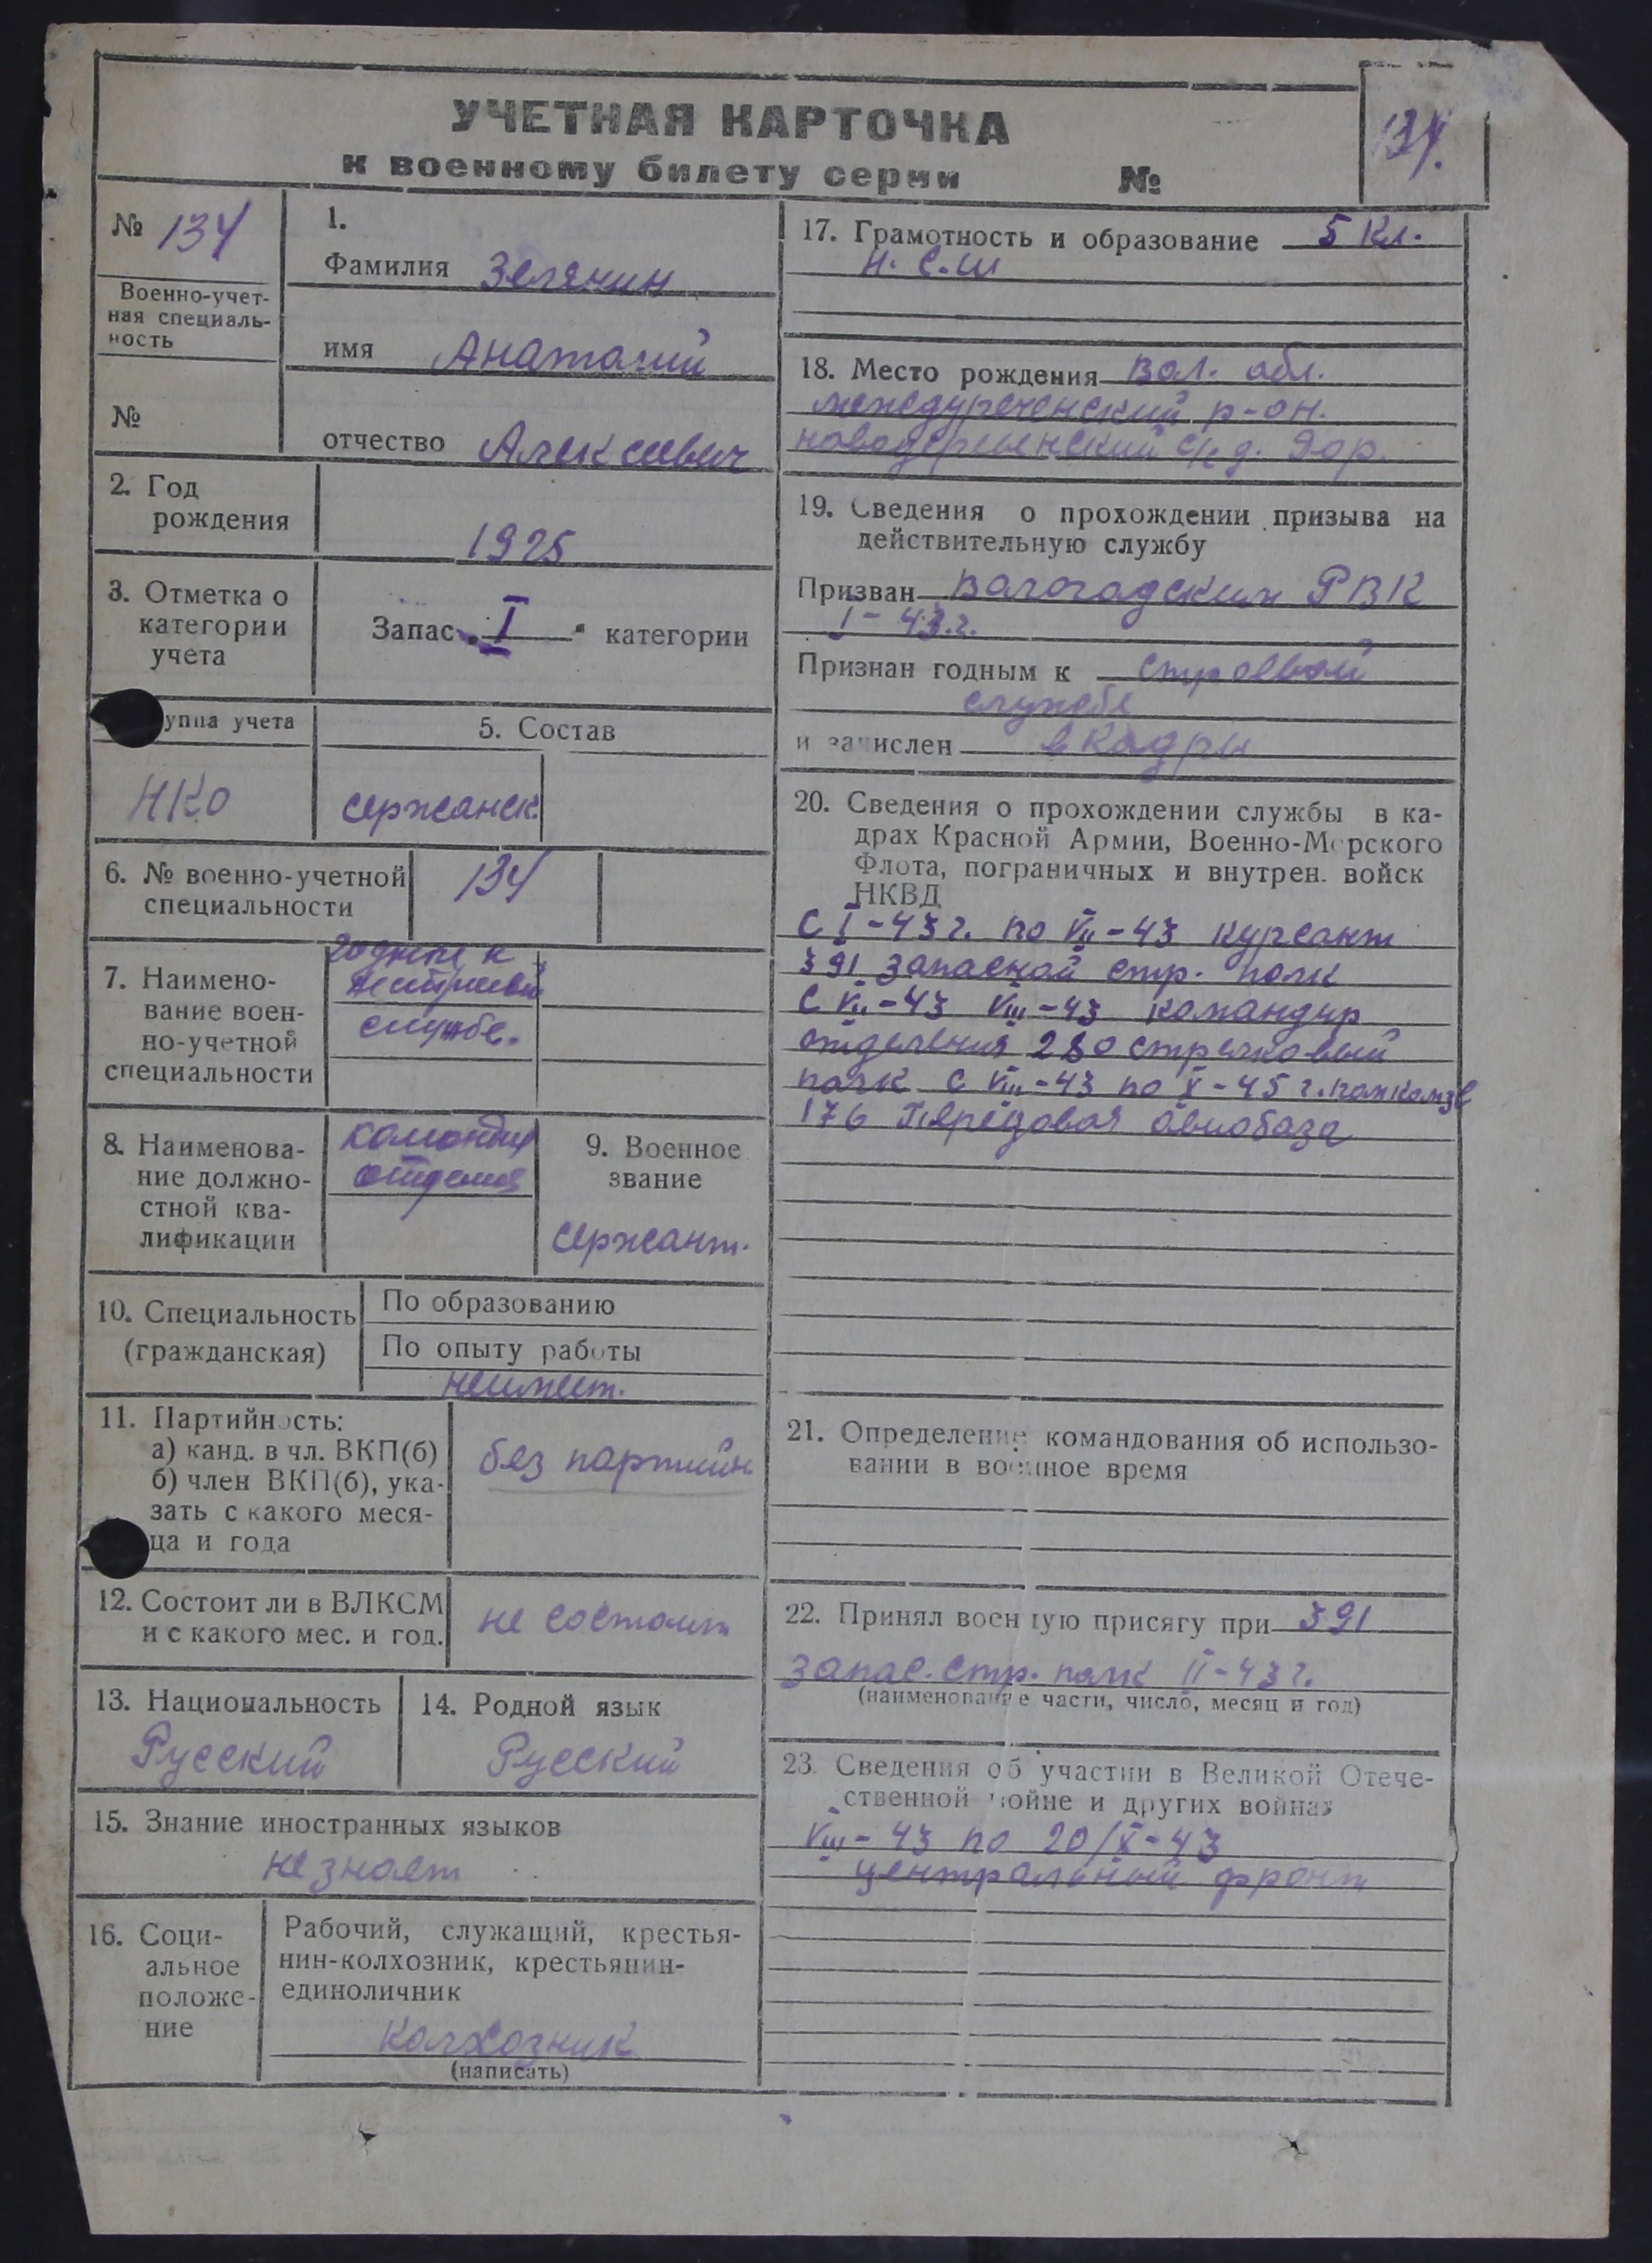 УЧЕТНАЯ КАРТОЧКА
к военному билету серии №
134.
№ 134
Военно-учет-
ная специаль-
ность
№
1.
Фамилия Зелянин
имя Анатолий
отчество Алексеевич
2. Год
рождения
1925
3. Отметка о
категории
учета
Запас I категории
уппа учета
НКО
5. Состав
сержанск.
6. № военно-учетной
специальности
134
7. Наимено-
вание воен-
но-учетной
специальности
годные к
нестроевой
службе.
8. Наименова-
ние должно-
стной ква-
лификации
командир
отделения
9. Военное
звание
сержант.
10. Специальность
(гражданская)
По образованию
По опыту работы
неимеет.
11. Партийность:
а) канд. в чл. ВКП(б)
б) член ВКП(б), ука-
зать с какого меся-
ца и года
без партийн.
12. Состоит ли в ВЛКСМ
и с какого мес. и год.
не состоит
13. Национальность
Русский
14. Родной язык
Русский
15. Знание иностранных языков
не знает
16. Соци-
альное
положе-
ние
Рабочий, служащий, крестья-
нин-колхозник, крестьянин-
единоличник
колхозник
(написать)
17. Грамотность и образование 5 кл.
н. с. ш
18. Место рождения Вол. обл.
междуреченский р-он.
новодеревенский с/с д.
19. Сведения о прохождении призыва на
действительную службу
Призван Вологодским РВК
I - 43.г.
Признан годным к строевой
службе
и зачислен в кадры
20. Сведения о прохождении службы в ка-
драх Красной Армии, Военно-Морского
Флота, пограничных и внутрен. войск
НКВД
С I-43 г. по VII-43 курсант
391 запасной стр. полк
С VII-43 VIII-43 командир
отделения 280 стрелковый
полк С VIII-43 по X-45 г. помкомзв
176 Передовая авиобаза
21. Определение командования об использо-
вании в военное время
22. Принял военную присягу при 391
запас. стр. полк II-43 г.
(наименование части, число, месяц и год)
23. Сведения об участии в Великой Отече-
ственной войне и других войнах
VIII-43 по 20/X-43
центральный фронт